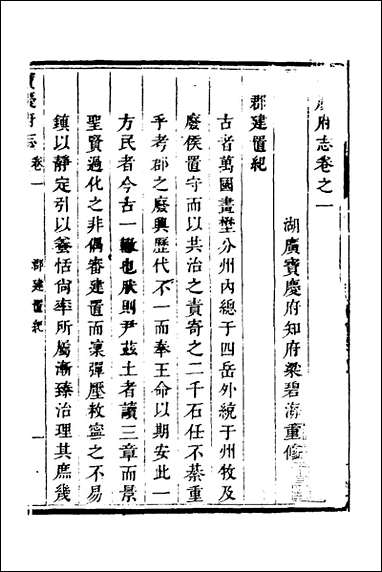 慶府志卷之一
湖廣寶慶府知府梁碧海重修
郡建置紀
古昔萬國畫壄分州內總于四岳外統于州牧及
廢侯置守而以共治之責寄之二千石任不綦重
乎考郡之廢興歷代不一而奉王命以期安此一
方民者今古一轍也然則尹茲土者讀三章而景
聖賢過化之非偶審建置而凜彈壓敉寧之不易
鎮以靜定引以養恬尙率所屬漸臻治理其庶幾
寶慶府志 卷一 郡建置紀 一